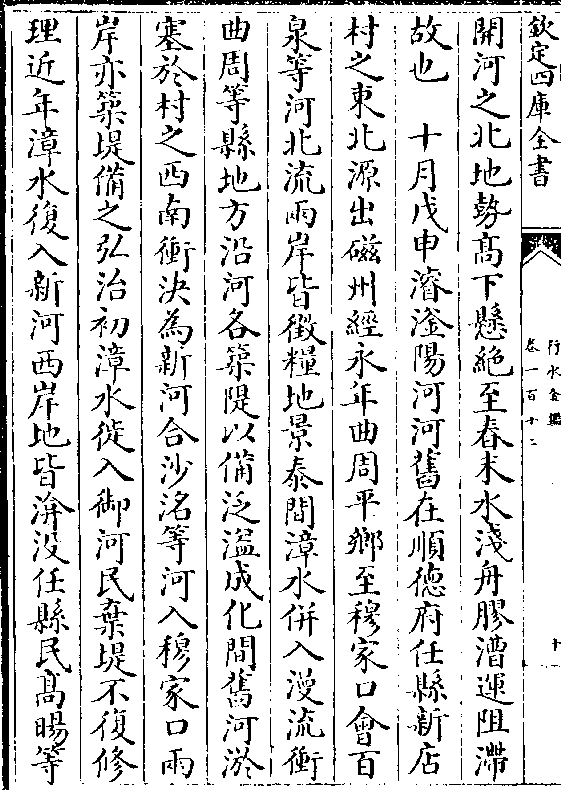 欽定四庫全書
行水金鑑
卷一百十二
十
開河之北地勢髙下懸絶至春末水淺舟膠漕運阻滯
故也　十月戊申濬滏陽河河舊在順德府任縣新店
村之東北源出磁州經永年曲周平鄉至穆家口會百
泉等河北流兩岸皆徵糧地景泰間漳水併入漫流衝
曲周等縣地方沿河各築隄以備泛溢成化間舊河淤
塞於村之西南衝決為新河合沙洺等河入穆家口兩
岸亦築堤備之弘治初漳水徙入御河民棄堤不復修
理近年漳水復入新河西岸地皆渰没任縣民髙暘等